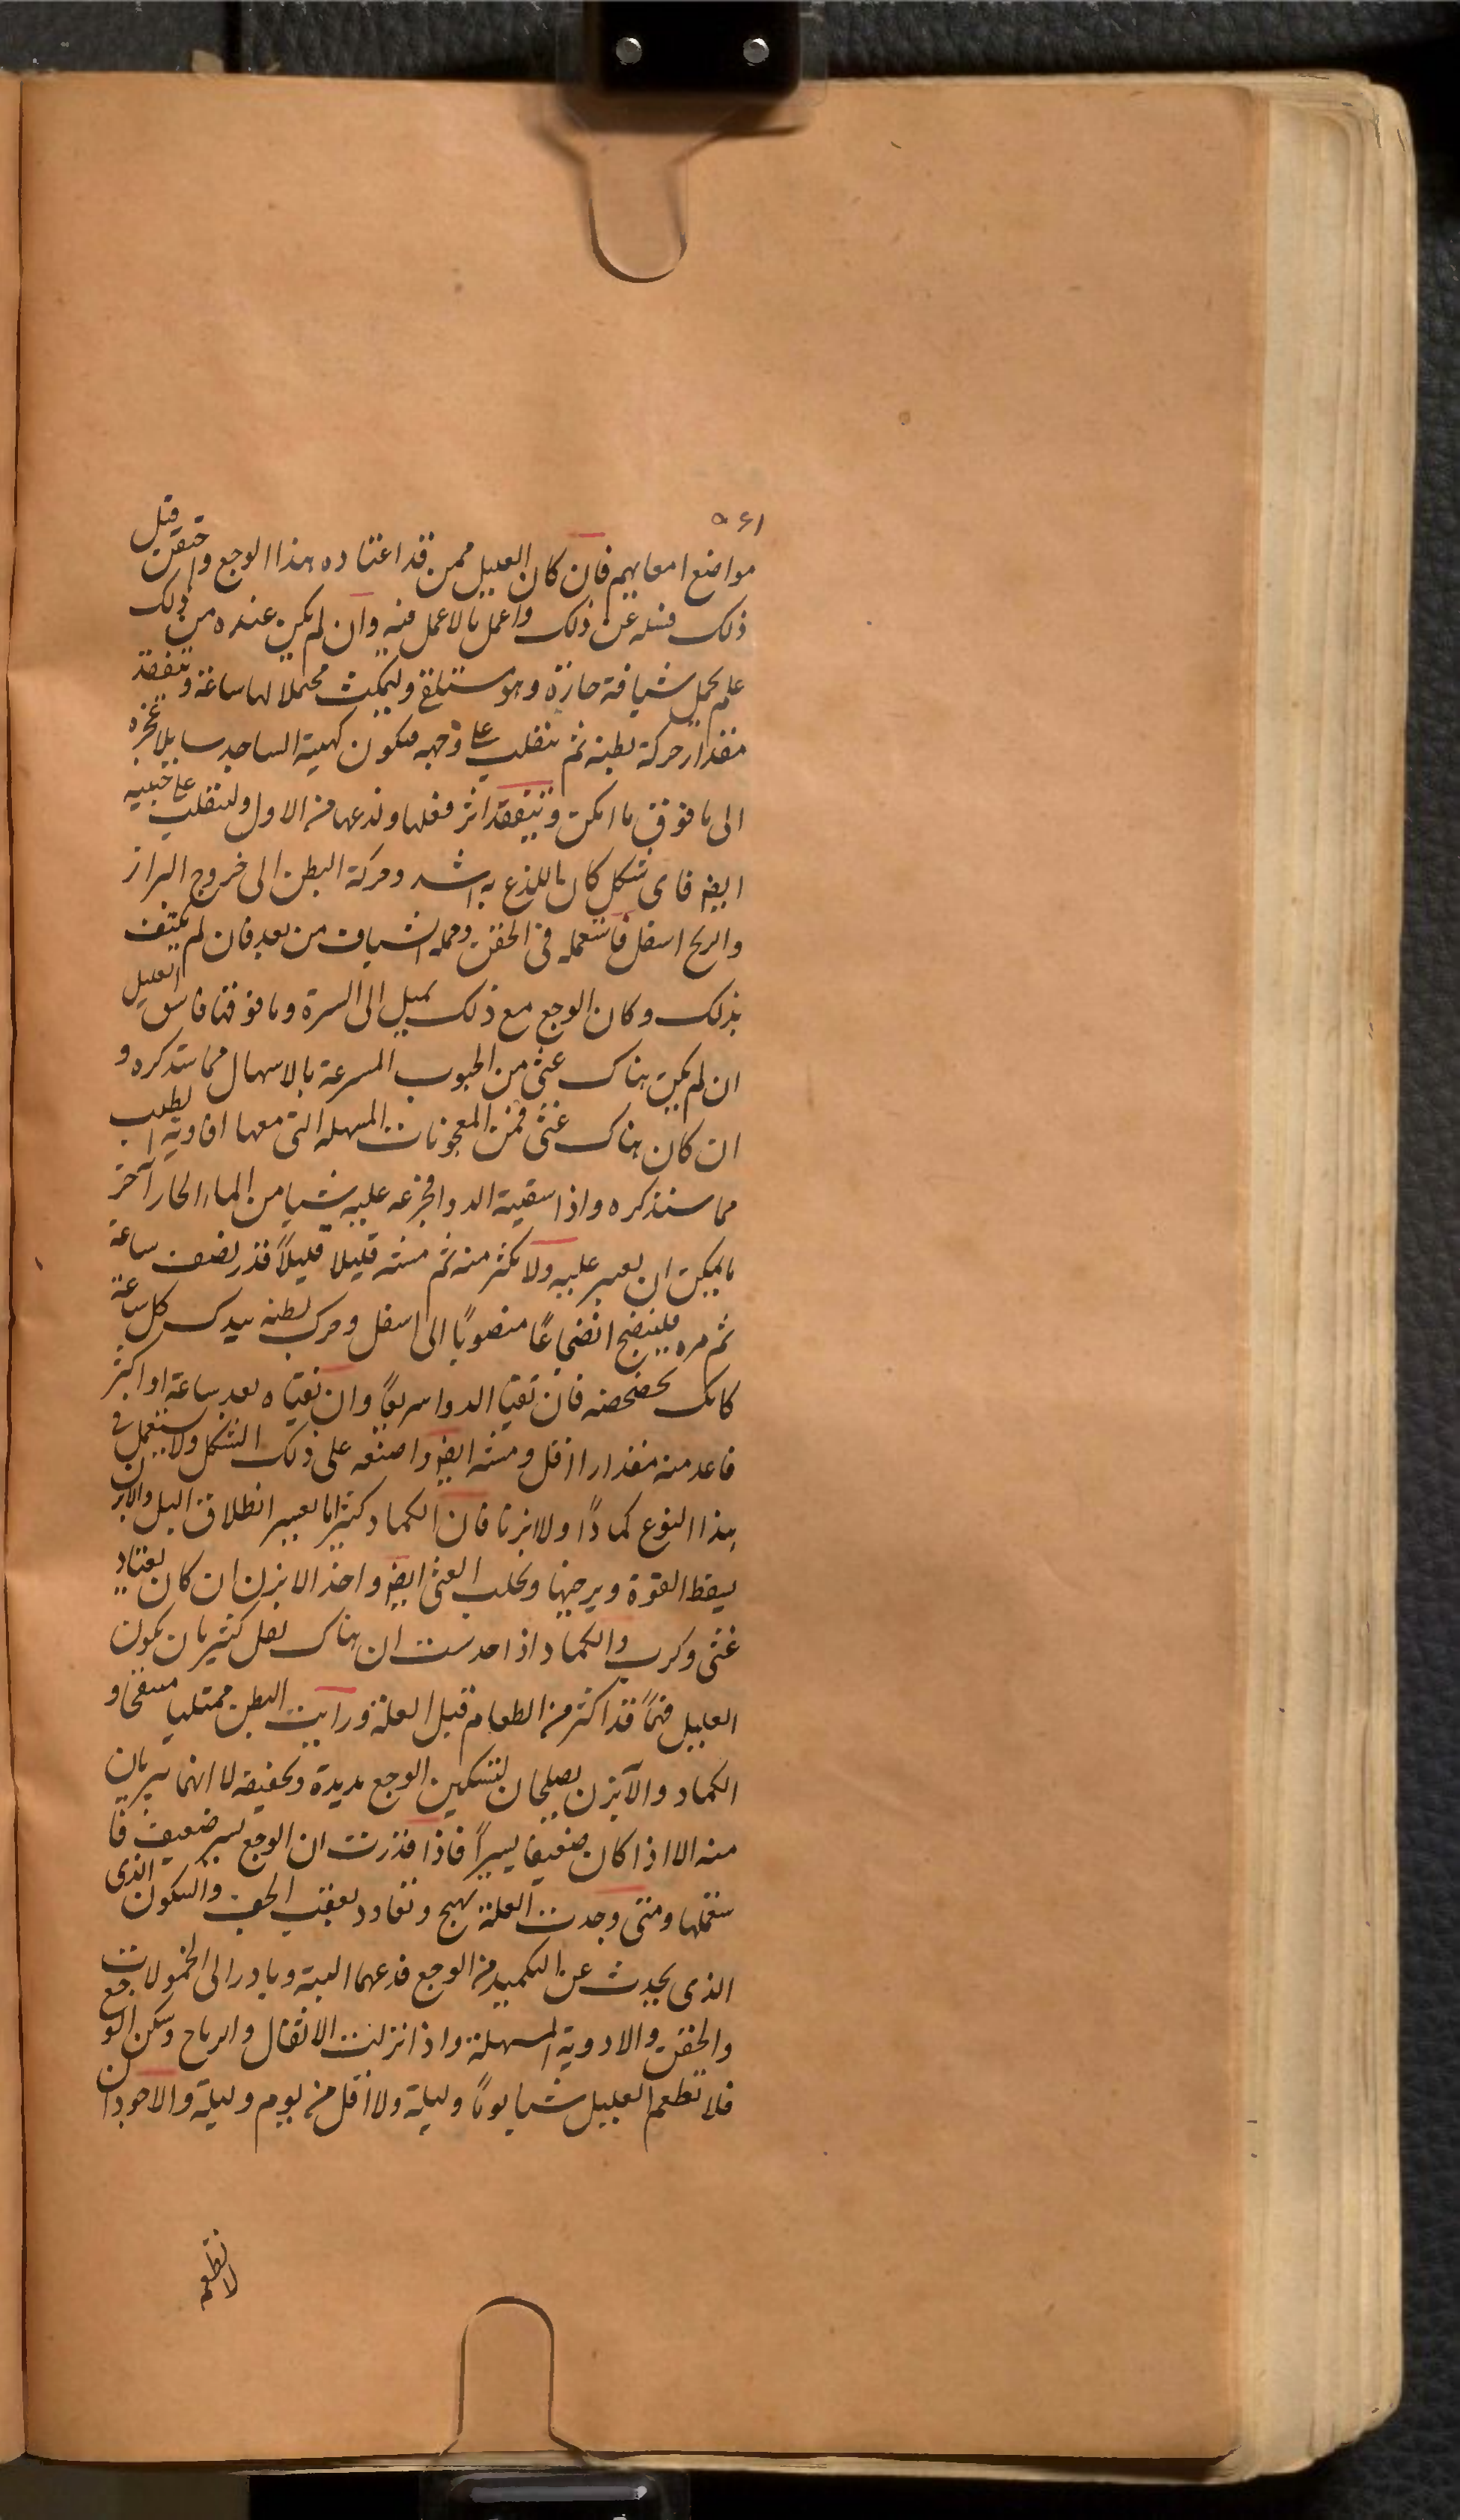 ٥٤١
مواضع امعايهم فان كان العليل ممن قد اعتاده هذا الوجع واحتقن قبل
ذلك فسله عن ذلك واعمل بالاعمل فيه وان لم يكن عنده من ذلك
علم يحمل شيافة حارة وهو مستلق وليمكث محتملا لها ساعة وتتفقد
مقدار حركة بطنه ثم ينقلب على وجهه فيكون كهيئة الساجد سايلا عجزه
الى ما فوق ما امكن وتتفقد اثر فعلها وتدعها من الاول ولينقلب على جنبيه
ايضا فاى شكل كان ما للذع به اشد وحركة البطن الى خروج البراز
والريح اسفل فاستعمله فى الحقن وحمله الشياف من بعد فان لم يكتف
بذلك وكان الوجع مع ذلك يميل الى السرة وما فوقها فاسق العليل
ان لم يكن هناك غثى من الحبوب المسرعة بالاسهال مما ستذكره و
ان كان هناك غثى فمن المعجونات المسهلة التى معها افاويه لطلب
مما سنذكره واذا سقيته الدوا فجرعه عليه شيا من الماء الحار آخر
ما يمكن ان يصبر عليه ولا تكثر منه ثم مشه قليلا قليلاً قدر نصف ساعة
ثم مره فليضجع انضجاعًا منصوبًا الى اسفل وحرك بطنه بيدك كل ساعة
كانك تخضخضه فان تقيا الدوا سريعًا وان تقياه بعد ساعة او اكثر
فاعد منه مقدارا اقل ومشه ايضا واضعه على ذلك الشكل ولا يستعمل فى
هذا النوع كمادًا ولا ابزنا فان الكماد كثيرا ما يعسر انطلاق البل والابزن
يسقط القوة ويرخيها ويجلب الغثى ايضا واحذر الابزن ان كان يعتاد
غثى وكرب والكماد اذا حدست ان هناك ثفل كثير بان يكون
العليل نهمًا قد اكثر من الطعام قبل العلة ورايت البطن ممتليا منتفخا و
الكماد والآبزن يصلحان لتسكين الوجع مديدة وتخفيفه لا انهما يبريان
منه الا اذا كان ضعيفا يسيراً فاذا قدرت ان الوجع يسير ضعيف فا
ستعملها ومتى وجدت العلة تهيج وتعاود بعقب الخف والسكون الذى
الذى يحدث عن التكميد من الوجع فدعهما البتة وبادر الى الحمولات
والحقن والادوية المسهلة واذا نزلت الاثقال والرياح وسكن الوجع
فلا تطعم العليل شيا يومًا وليلة ولا اقل من يوم وليلة والاجود ان
لا تطعم